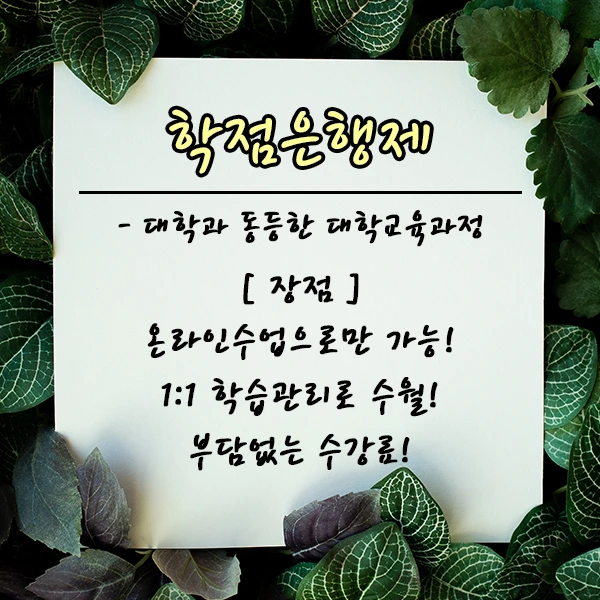 학점은행제
- 대학과 동등한 대학교육과정
[ 장점 ]
온라인수업으로만 가능!
1:1 학습관리로 수월!
부담없는 수강료!